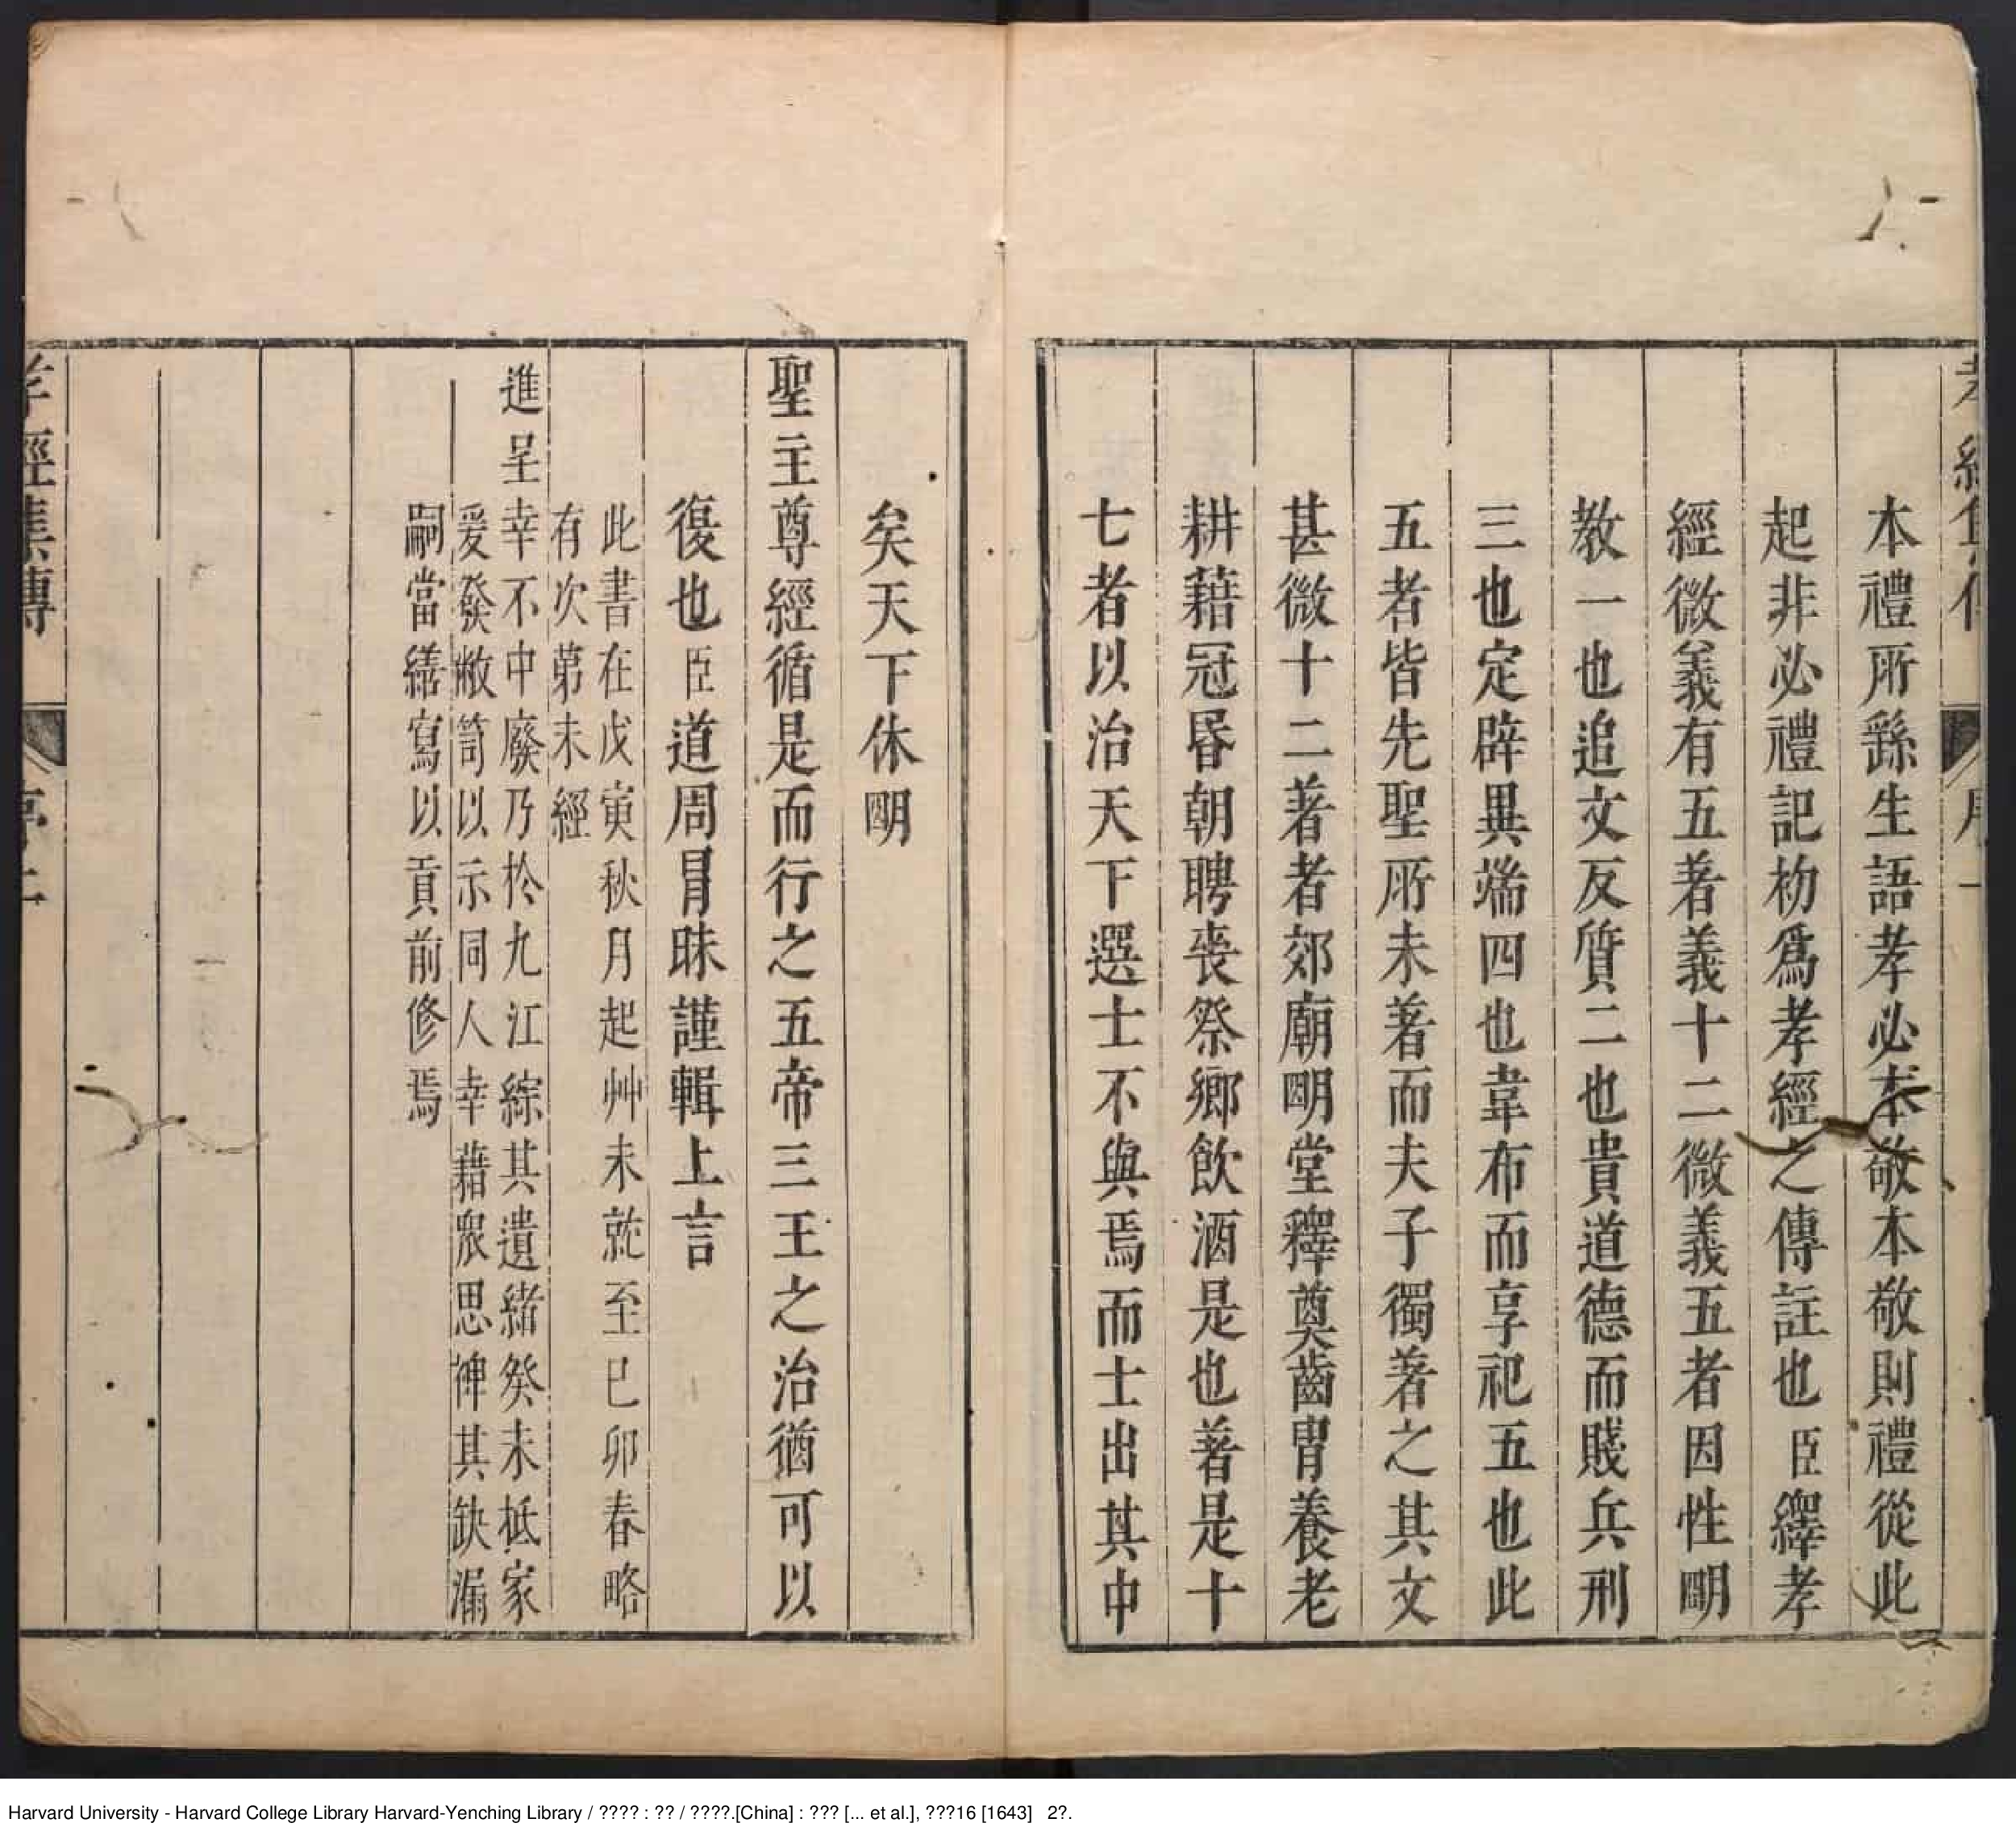 本禮所繇生語孝必本敬本敬則禮從此
起非必禮記枌爲孝經之傳註也臣繹孝
經微義有五著義十二微義五者因性朙
教一也追文反質二也貴道德而賤兵刑
三也定辟異端四也韋布而享祀五也此
五者皆先聖所未著而夫子獨著之其文
甚微十二著者郊廟朙堂釋奠齒胄養老
耕藉冠昏朝聘喪祭鄉飲酒是也著是十
七者以治天下選士不與焉而士出其中
矣天下休朙
聖主尊經循是而行之五帝三王之治猶可以
復也臣道周冒昧謹輯上言
此書在戊寅秋月起艸未就至巳卯春略
有次第未經
進呈幸不中廢乃於九江綜其遺緒癸未柢家
爰發敝笥以示同人幸藉衆思裨其缺漏
嗣當繕寫以貢前修焉
孝經集傳
Harvard University - Harvard College Library Harvard-Yenching Library / ???? : ?? / ????.[China] : ??? [... et al.], ???16 [1643] 2?.